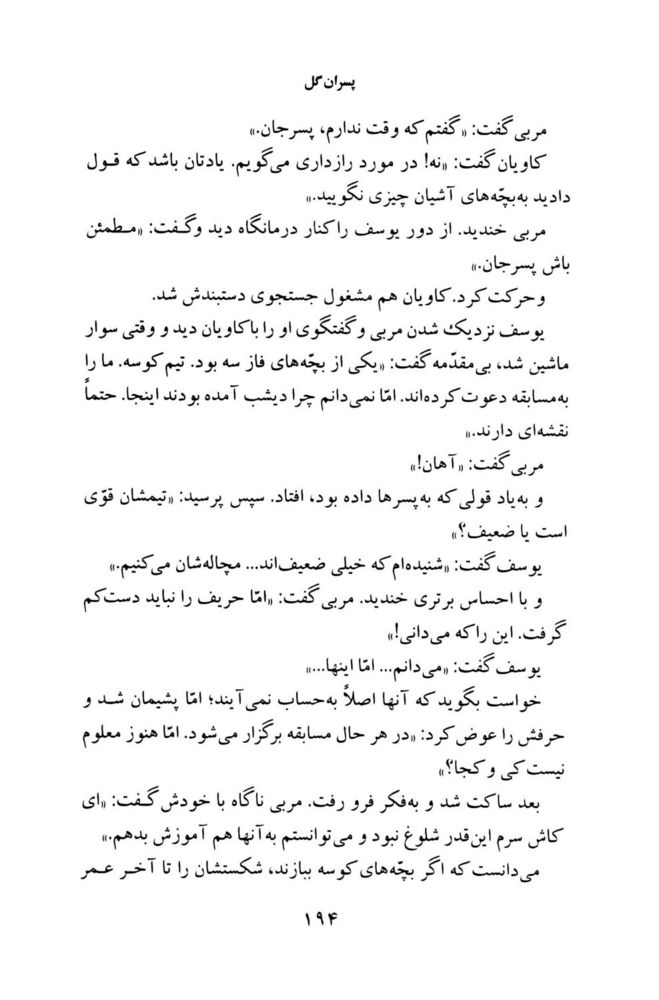 پسران گل
مربی گفت: «گفتم که وقت ندارم، پسرجان.»
کاویان گفت: «نه! در مورد رازداری می‌گویم. یادتان باشد که قول
دادید به‌بچّه‌های آشیان چیزی نگویید.»
مربی خندید. از دور یوسف را کنار درمانگاه دید و گفت: «مطمئن
باش پسرجان.»
و حرکت کرد. کاویان هم مشغول جستجوی دستبندش شد.
یوسف نزدیک شدن مربی و گفتگوی او را با کاویان دید و وقتی سوار
ماشین شد، بی‌مقدّمه گفت: «یکی از بچّه‌های فاز سه بود. تیم کوسه. ما را
به‌مسابقه دعوت کرده‌اند. امّا نمی‌دانم چرا دیشب آمده بودند اینجا. حتماً
نقشه‌ای دارند.»
مربی گفت: «آهان!»
و به‌یاد قولی که به‌پسرها داده بود، افتاد. سپس پرسید: «تیمشان قوّی
است یا ضعیف؟»
یوسف گفت: «شنیده‌ام که خیلی ضعیف‌اند... مچاله‌شان می‌کنیم.»
و با احساس برتری خندید. مربی گفت: «امّا حریف را نباید دست‌کم
گرفت. این را که می‌دانی!»
یوسف گفت: «می‌دانم... امّا اینها...»
خواست بگوید که آنها اصلاً به‌حساب نمی‌آیند؛ امّا پشیمان شد و
حرفش را عوض کرد: «در هر حال مسابقه برگزار می‌شود. امّا هنوز معلوم
نیست کی و کجا؟»
بعد ساکت شد و به‌فکر فرو رفت. مربی ناگاه با خودش گفت: «ای
کاش سرم این‌قدر شلوغ نبود و می‌توانستم به‌آنها هم آموزش بدهم.»
می‌دانست که اگر بچّه‌های کوسه ببازند، شکستشان را تا آخر عمر
۱۹۴